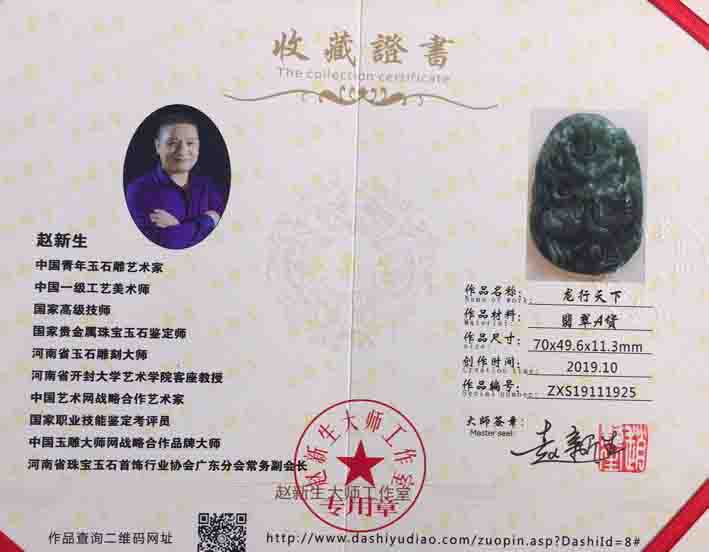 收藏證書
The collection certificate
赵新生
中国青年玉石雕艺术家
中国一级工艺美术师
国家高级技师
国家贵金属珠宝玉石鉴定师
河南省玉石雕刻大师
河南省开封大学艺术学院客座教授
中国艺术网战略合作艺术家
国家职业技能鉴定考评员
中国玉雕大师网战略合作品牌大师
河南省珠宝玉石首饰行业协会广东分会常务副会长
作品名称: 龙行天下
Name of Work:
作品材料: 翡翠A货
Material:
作品尺寸: 70x49.6x11.3mm
size:
创作时间: 2019.10
Creation time:
作品编号: ZXS19111925
Serial number:
大师签章:
Master seal:
赵新生
赵新生大师工作室
专用章
赵新生大师工作室
作品查询二维码网址
http://www.dashiyudiao.com/zuopin.asp?DashiId=8#